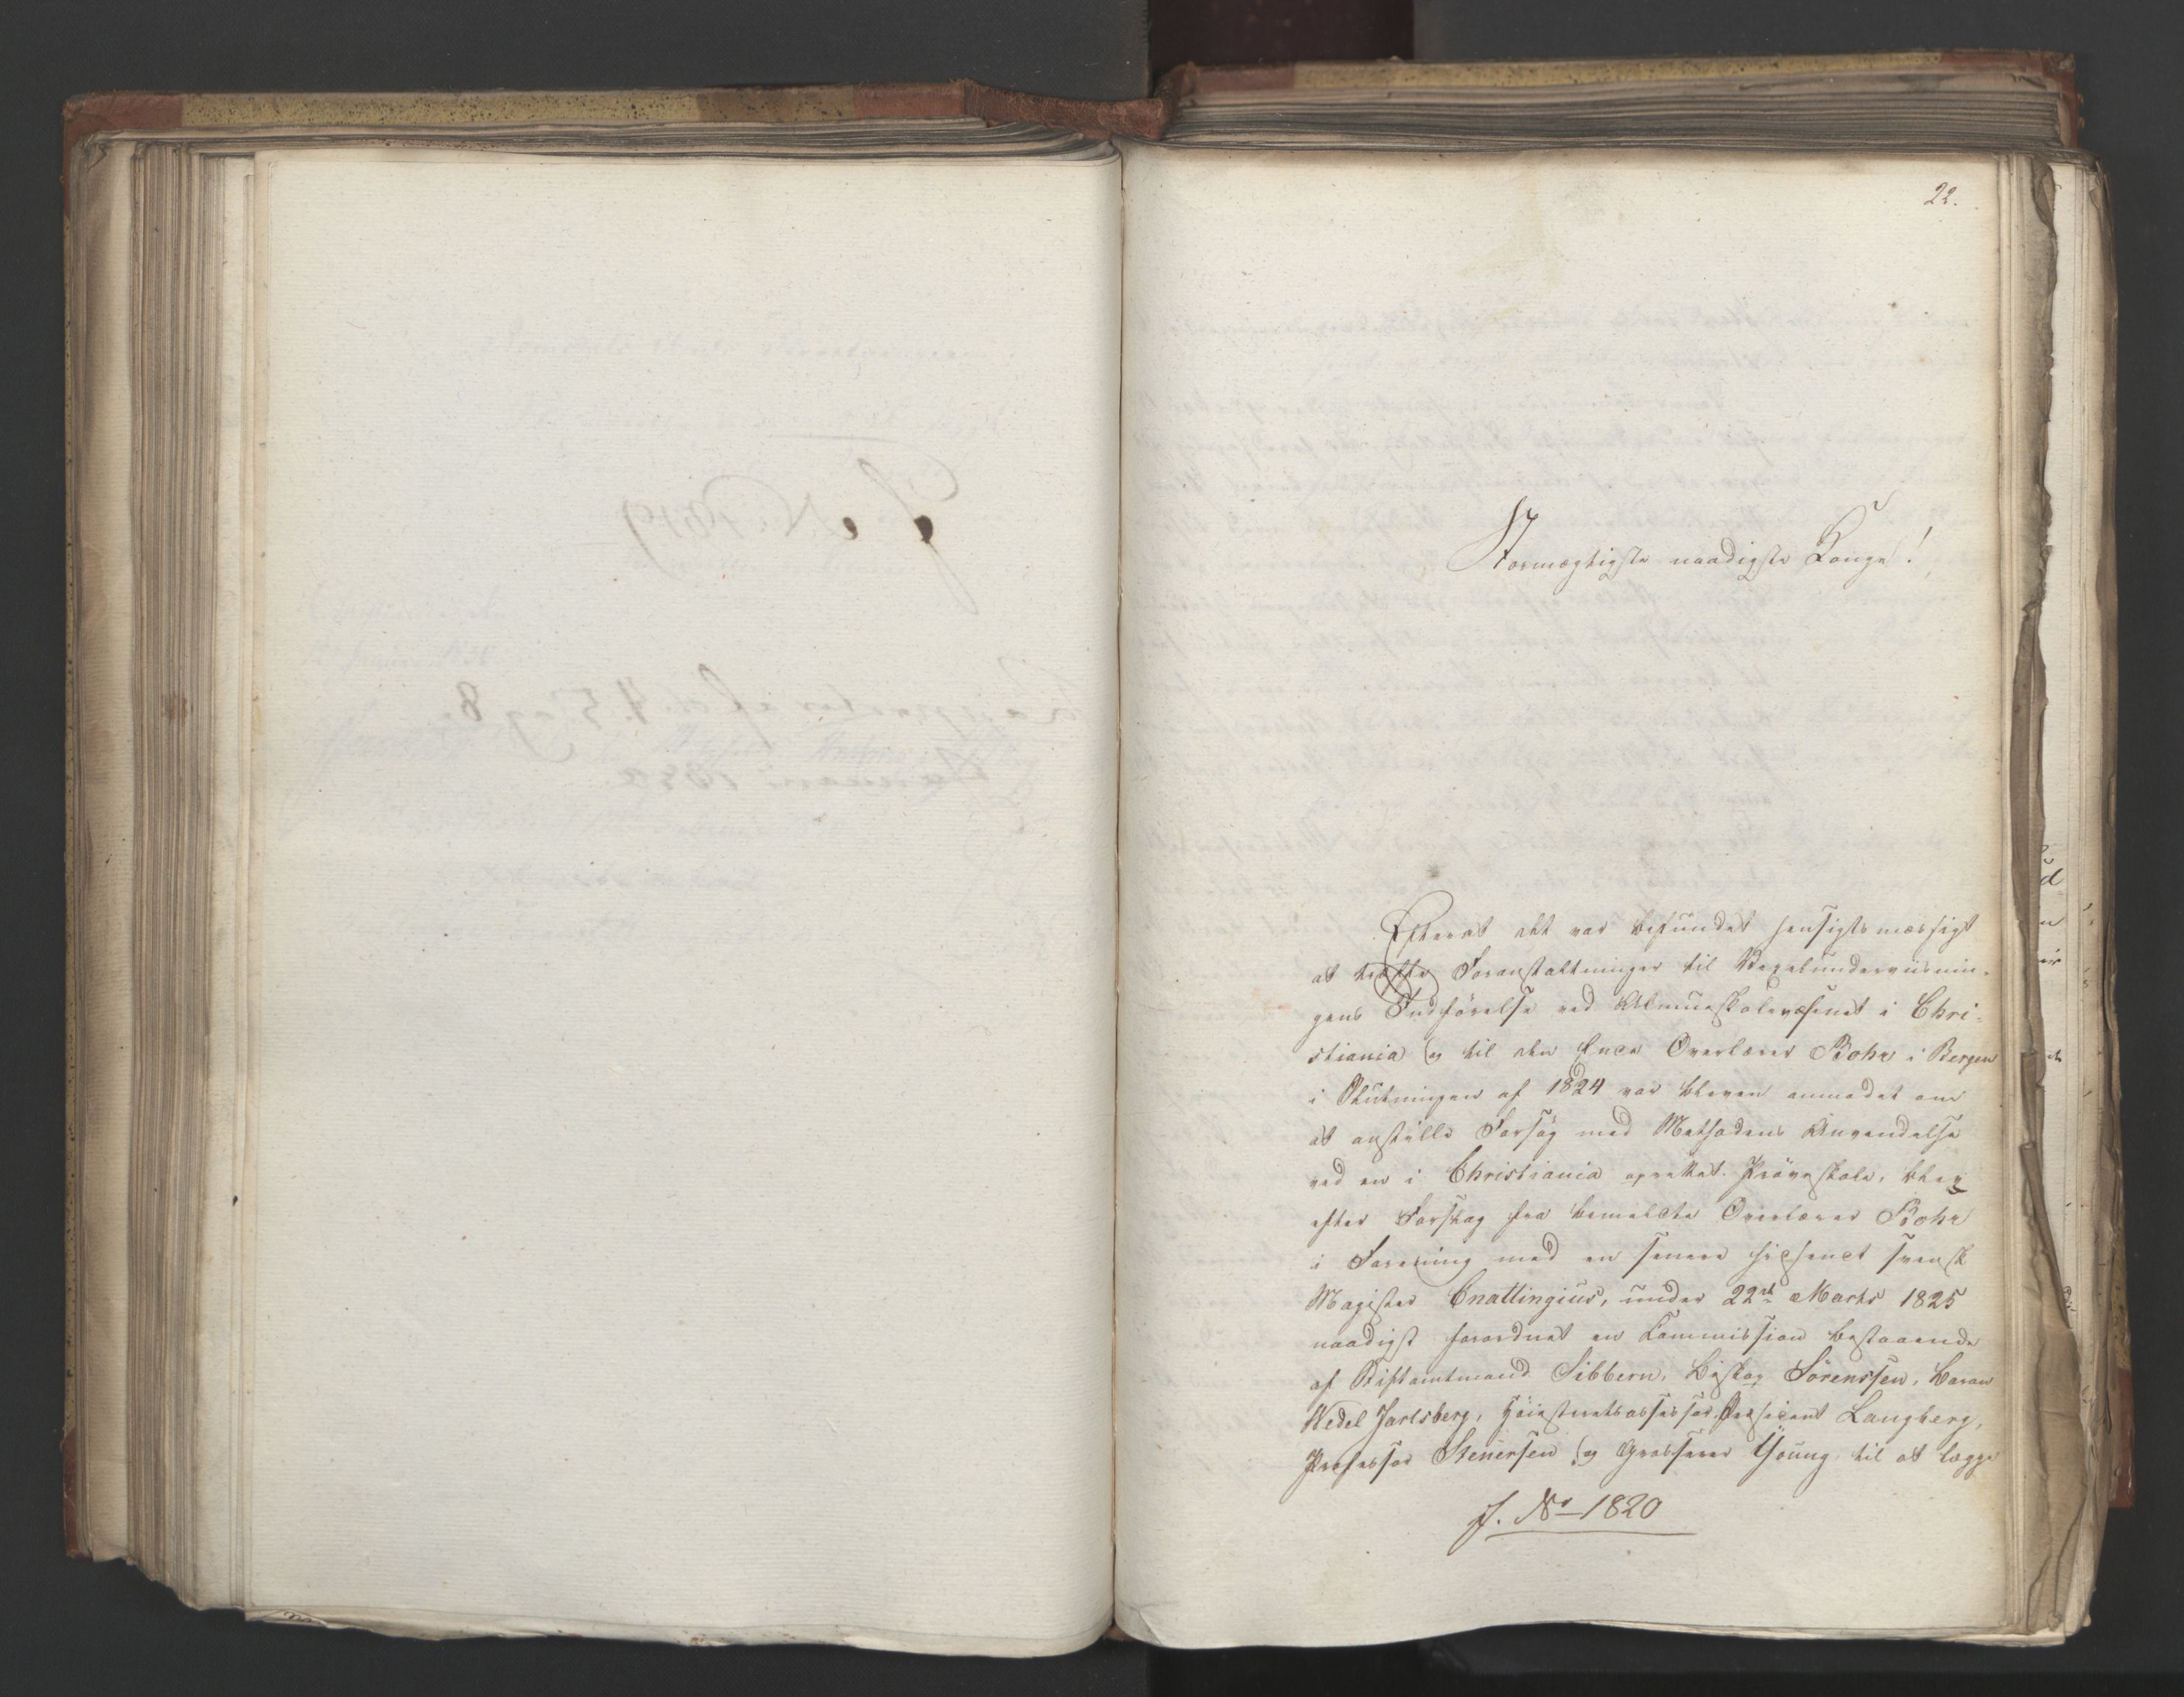 22.
Stormægtigste naadigste Konge!
Efterat det var befundet hensigtsmæssigt
at træffe Foranstaltninger til Vexelunderviisnin-
gens Indførelse ved Almueskolevæsenet i Chri-
stiania og til den Ende Overlærer Bohr i Bergen
i Slutningen af 1824 var bleven anmodet om
at anstille Forsøg med Methodens Anvendelse
ved en i Christiania oprettet Prøveskole, blev
efter Forslag fra bemeldte Overlærer Bohr
i Forening med en senere hidsendt svensk
Magister Cnattingius, under 22de Marts 1825
naadigst forordnet en Kommission bestaaende
af Stiftamtmand Sibbern, Biskop Sörenssen, Baron
Wedel Jarlsberg, Høiesteretsassessor Debes, Lector Langberg,
Professor Stenersen og Grosserer Young, til at lægge
J. No 1820